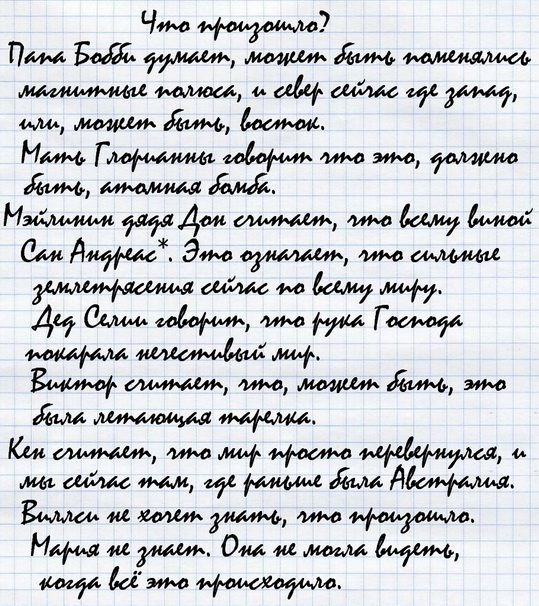 Что произошло?
Папа Бобби думает, может быть поменялись
магнитные полюса, и север сейчас где запад,
или, может быть, восток.
Мать Глорианны говорит что это, должно
быть, атомная бомба.
Мэйлинин дядя Дон считает, что всему виной
Сан Андреас*. Это означает, что сильные
землетрясения сейчас по всему миру.
Дед Селии говорит, что рука Господа
покарала нечестивый мир.
Виктор считает, что, может быть, это
была летающая тарелка.
Кен считает, что мир просто перевернулся, и
мы сейчас там, где раньше была Австралия.
Виллси не хочет знать, что произошло.
Мария не знает. Она не могла видеть,
когда всё это происходило.